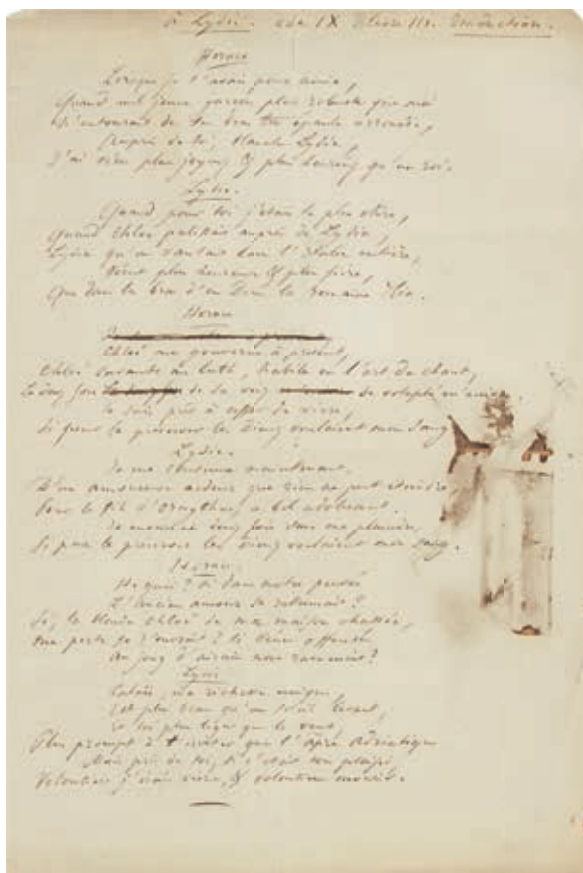 à Lydie. ode IX livre III. traduction.
Horace
Lorsque je t'avais pour amie,
Quand nul jeune garçon plus robuste que moi
N'entourait de ses bras ton épaule arrondie,
Auprès de toi, blanche Lydie,
J'ai vécu plus joyeux & plus heureux qu'un roi.
Lydie.
Quand pour toi j'étais la plus chère,
Quand Chloé palissait auprès de Lydia,
Lydia qu'on vantait dans l'Italie entière,
Vécut plus heureuse & plus fière,
Que dans les bras d'un Dieu la Romaine Ilia.
Horace
Chloé me gouverne à présent,
Chloé savante au luth, habile en l'art du chant,
Le doux son de sa voix de volupté m'enivre.
Je suis prêt à cesser de vivre,
Si pour la préserver les Dieux voulaient mon sang
Lydie.
Je me consume maintenant
D'une amoureuse ardeur que rien ne peut éteindre
Pour le fils d'Ornythus, ce bel adolescent.
Je mourrais deux fois sans me plaindre,
Si pour le préserver les Dieux voulaient mon sang.
Horace.
He quoi? si dans notre pensée
L'ancien amour se ranimait?
Si, la blonde Chloé de ma maison chassée,
Ma porte se r'ouvrait? si Vénus offensée
Au joug d'airain nous ramenait?
Lydie
Calaïs, ma richesse unique,
Est plus beau qu'un soleil levant,
Et toi plus léger que le vent,
Plus prompt à t'irriter que l'âpre Adriatique
Mais près de toi, si c'était ton plaisir,
Volontiers j'irais vivre, & volontiers mourir.